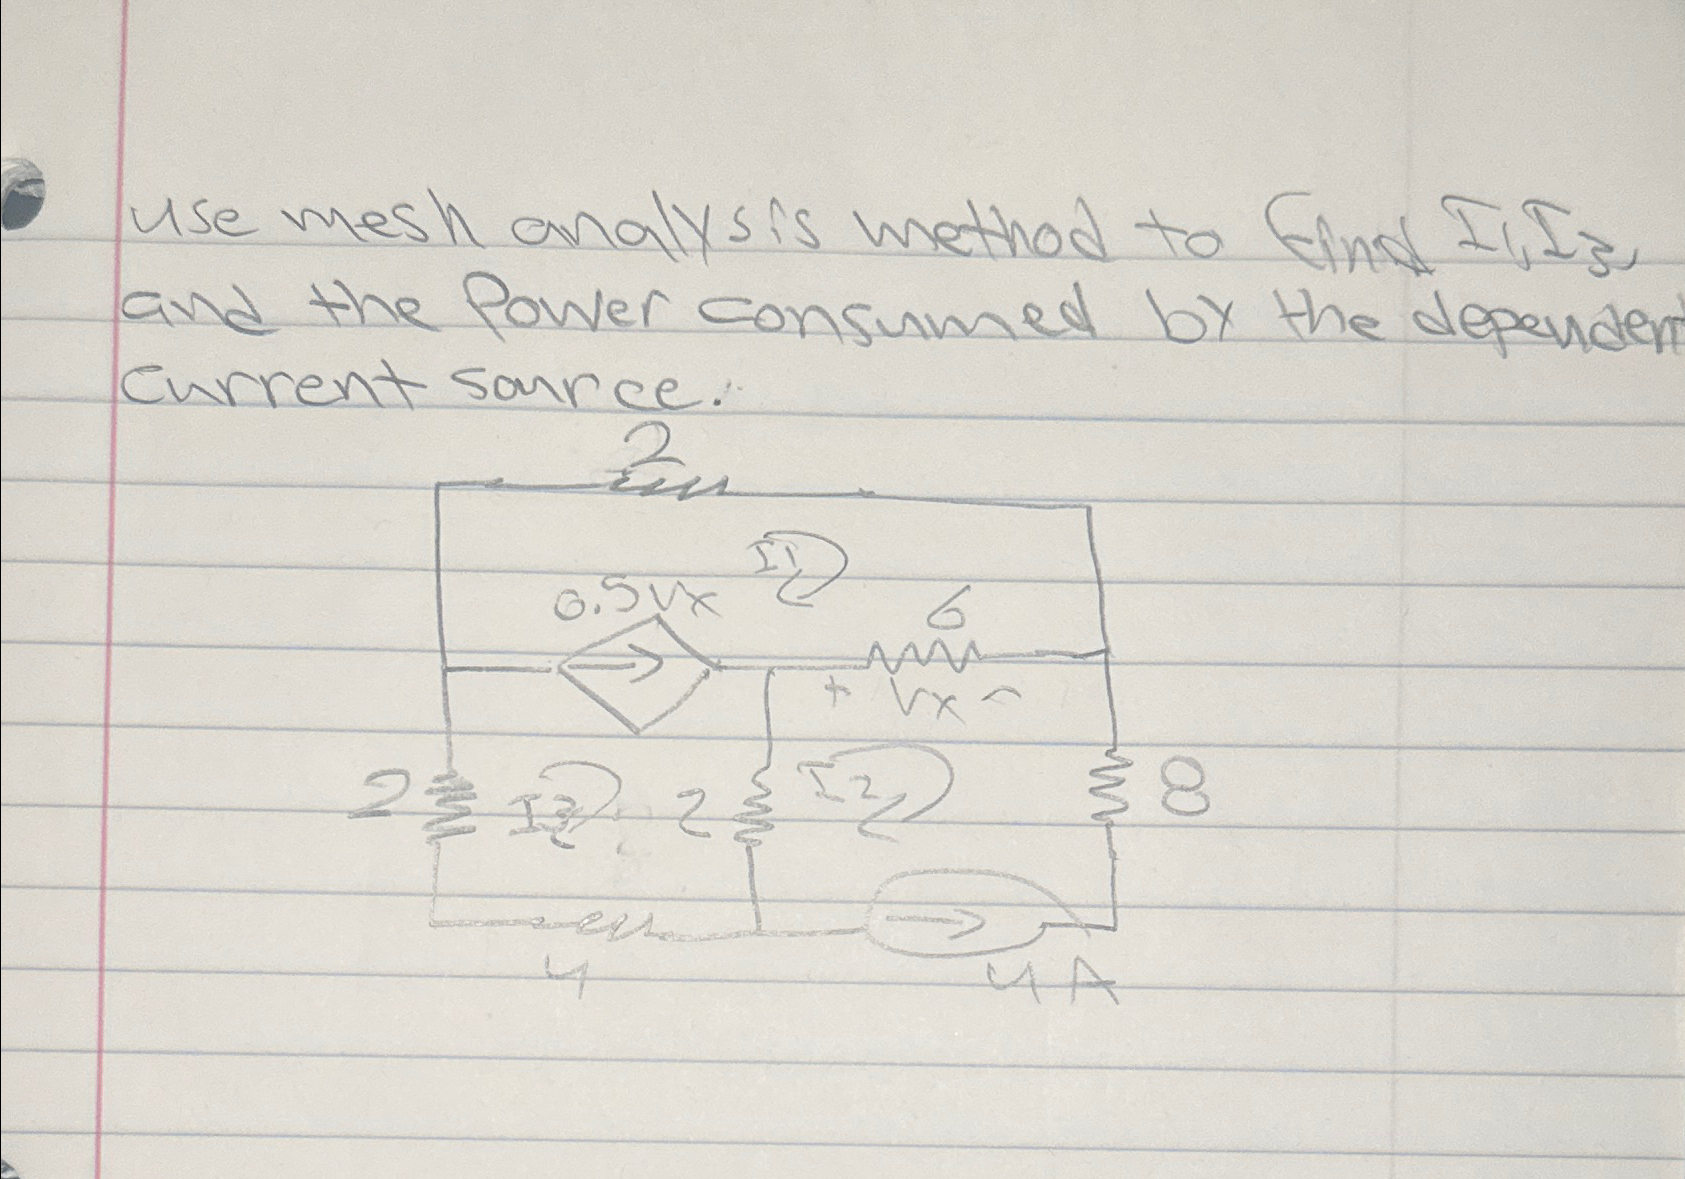 use mesh analysis method to find I1, I3,
and the Power consumed by the dependent
current source.
2
I1
0.5Vx
6
+ Vx -
2
I3
2
I2
8
4
4A